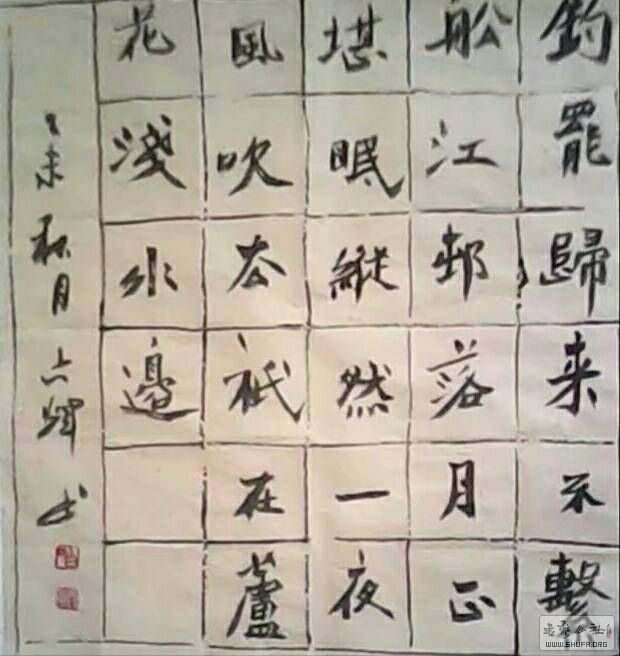 釣罷歸来不繫
船江邨落月正
堪眠縱然一夜
風吹去祇在蘆
花淺水邊
乙未秋月 书
书法公社
WWW.SHUFA.ORG